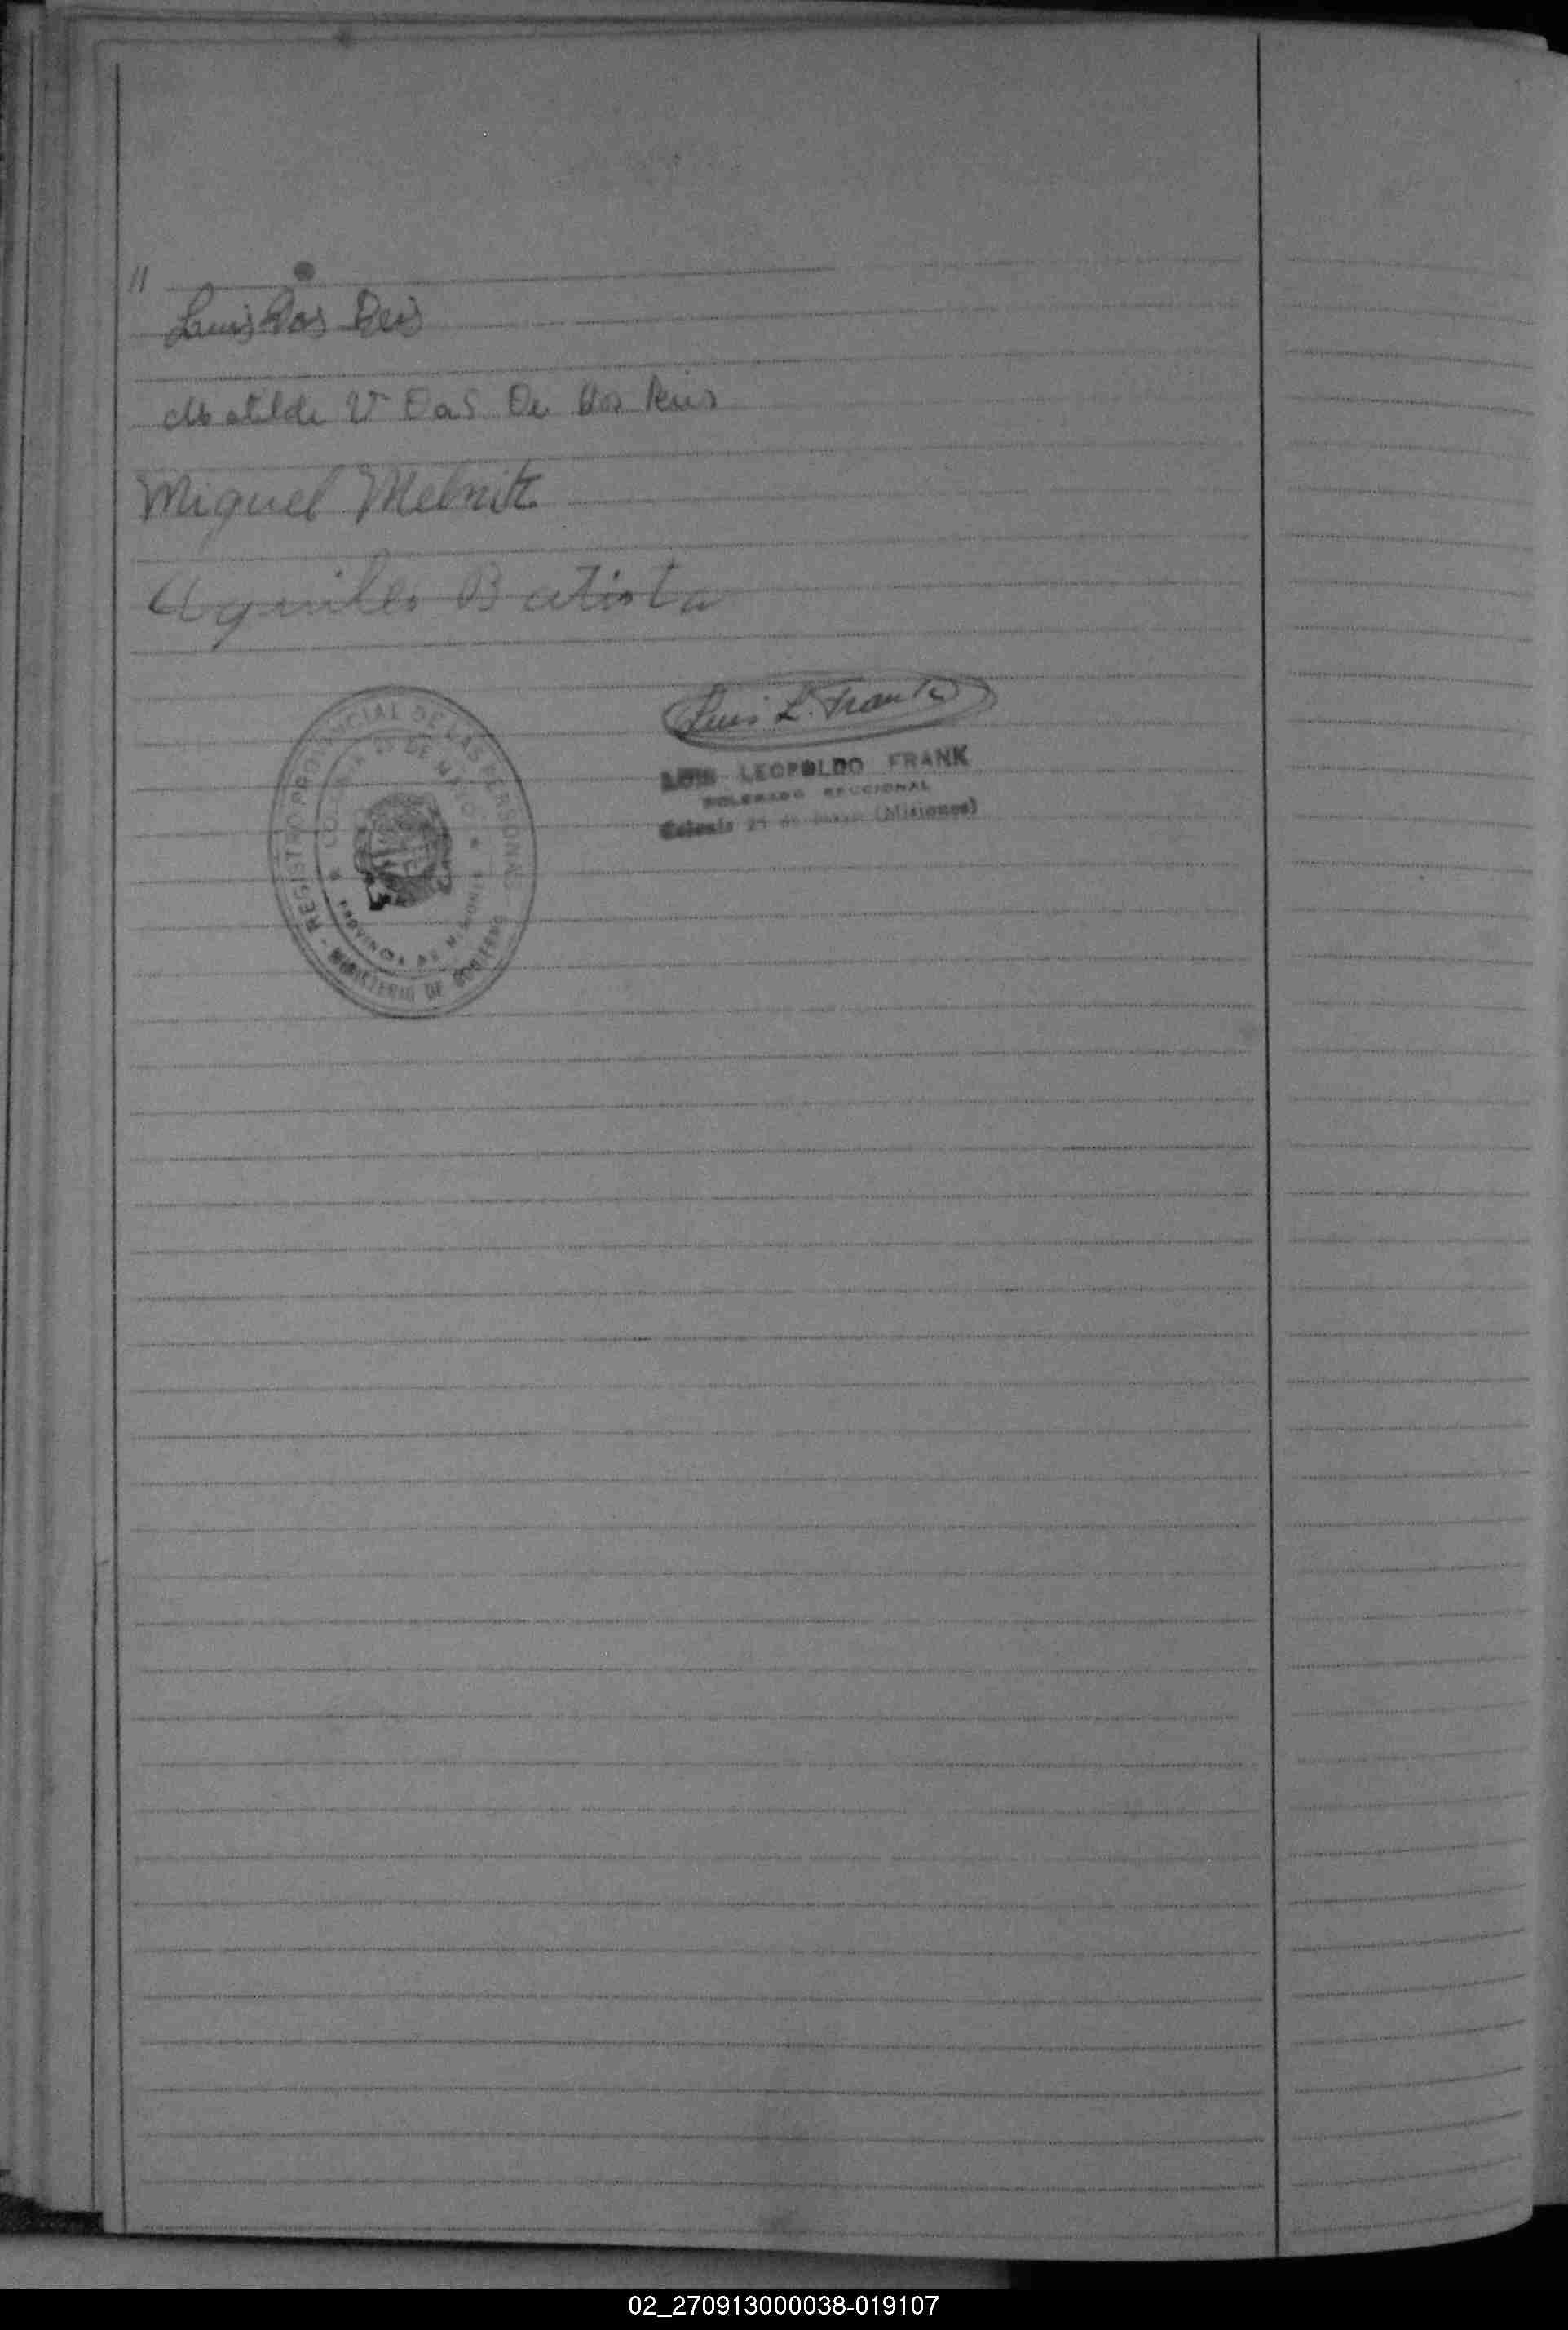 "
Luis Dos Reis
Matilde V Das De Dos Reis
Miguel Melnik
Batista
Luis L. Frank
LUIS LEOPOLDO FRANK
DELEGADO SECCIONAL
Colonia 25 de Mayo (Misiones)
REGISTRO PROVINCIAL DE LAS PERSONAS
COLONIA 25 DE MAYO
PROVINCIA DE MISIONES
- MINISTERIO DE GOBIERNO
02_270913000038-019107